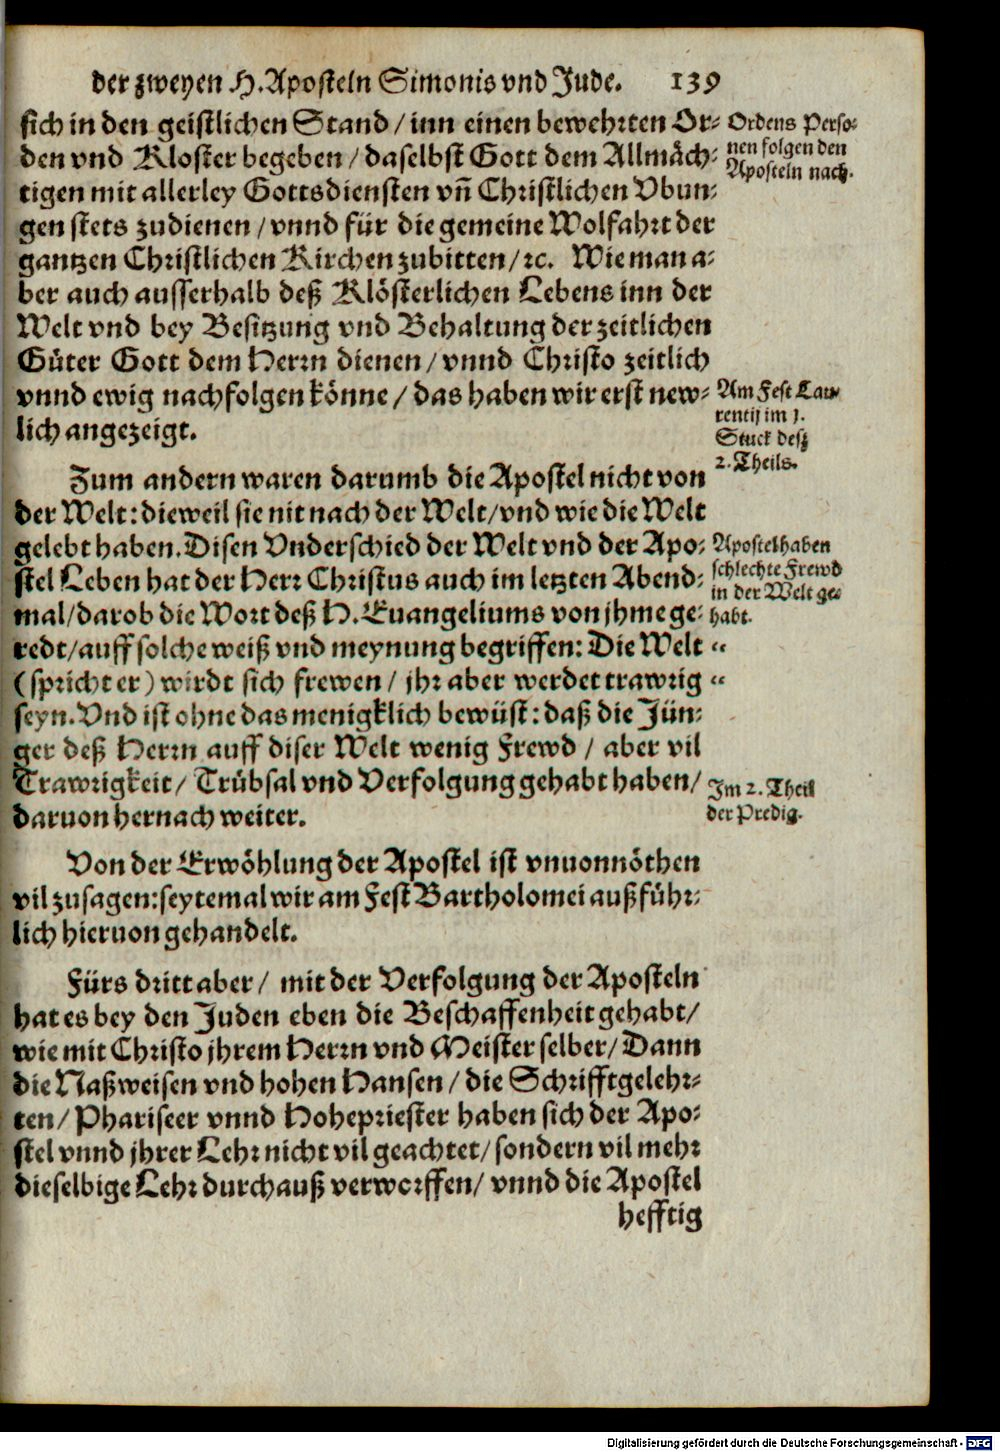 der zweyen H. Aposteln Simonis vnd Jude. 139
sich in den geistlichen Stand / inn einen bewehrten Or-
den vnd Kloster begeben / daselbst Gott dem Allmäch-
tigen mit allerley Gottsdiensten vñ Christlichen Vbun-
gen stets zudienen / vnnd für die gemeine Wolfahrt der
gantzen Christlichen Kirchen zubitten / ꝛc. Wie man a-
ber auch ausserhalb deß Klösterlichen Lebens inn der
Welt vnd bey Besitzung vnd Behaltung der zeitlichen
Güter Gott dem Herrn dienen / vnnd Christo zeitlich
vnnd ewig nachfolgen könne / das haben wir erst new-
lich angezeigt.
Ordens Perso-
nen folgen den
Aposteln nach.
Am Fest Lau-
rentij im 1.
Stuck desz
2. Theils.
Zum andern waren darumb die Apostel nicht von
der Welt: dieweil sie nit nach der Welt / vnd wie die Welt
gelebt haben. Disen Vnderschied der Welt vnd der Apo-
stel Leben hat der Herr Christus auch im letzten Abend-
mal / darob die Wort deß H. Euangeliums von jhme ge-
redt / auff solche weiß vnd meynung begriffen: Die Welt “
(spricht er) wirdt sich frewen / jhr aber werdet trawrig “
seyn. Vnd ist ohne das menigklich bewüst: daß die Jün-
ger deß Herrn auff diser Welt wenig Frewd / aber vil
Trawrigkeit / Trübsal vnd Verfolgung gehabt haben /
daruon hernach weiter.
Apostel haben
schlechte Frewd
in der Welt ge-
habt.
Im 2. Theil
der Predig.
Von der Erwöhlung der Apostel ist vnuonnöthen
vil zusagen: seytemal wir am Fest Bartholomei außführ-
lich hieruon gehandelt.
Fürs dritt aber / mit der Verfolgung der Aposteln
hat es bey den Juden eben die Beschaffenheit gehabt /
wie mit Christo jhrem Herrn vnd Meister selber / Dann
die Naßweisen vnd hohen Hansen / die Schrifftgelehr-
ten / Phariseer vnnd Hohepriester haben sich der Apo-
stel vnnd jhrer Lehr nicht vil geachtet / sondern vil mehr
dieselbige Lehr durchauß verworffen / vnnd die Apostel
hefftig
Digitalisierung gefördert durch die Deutsche Forschungsgemeinschaft - DFG